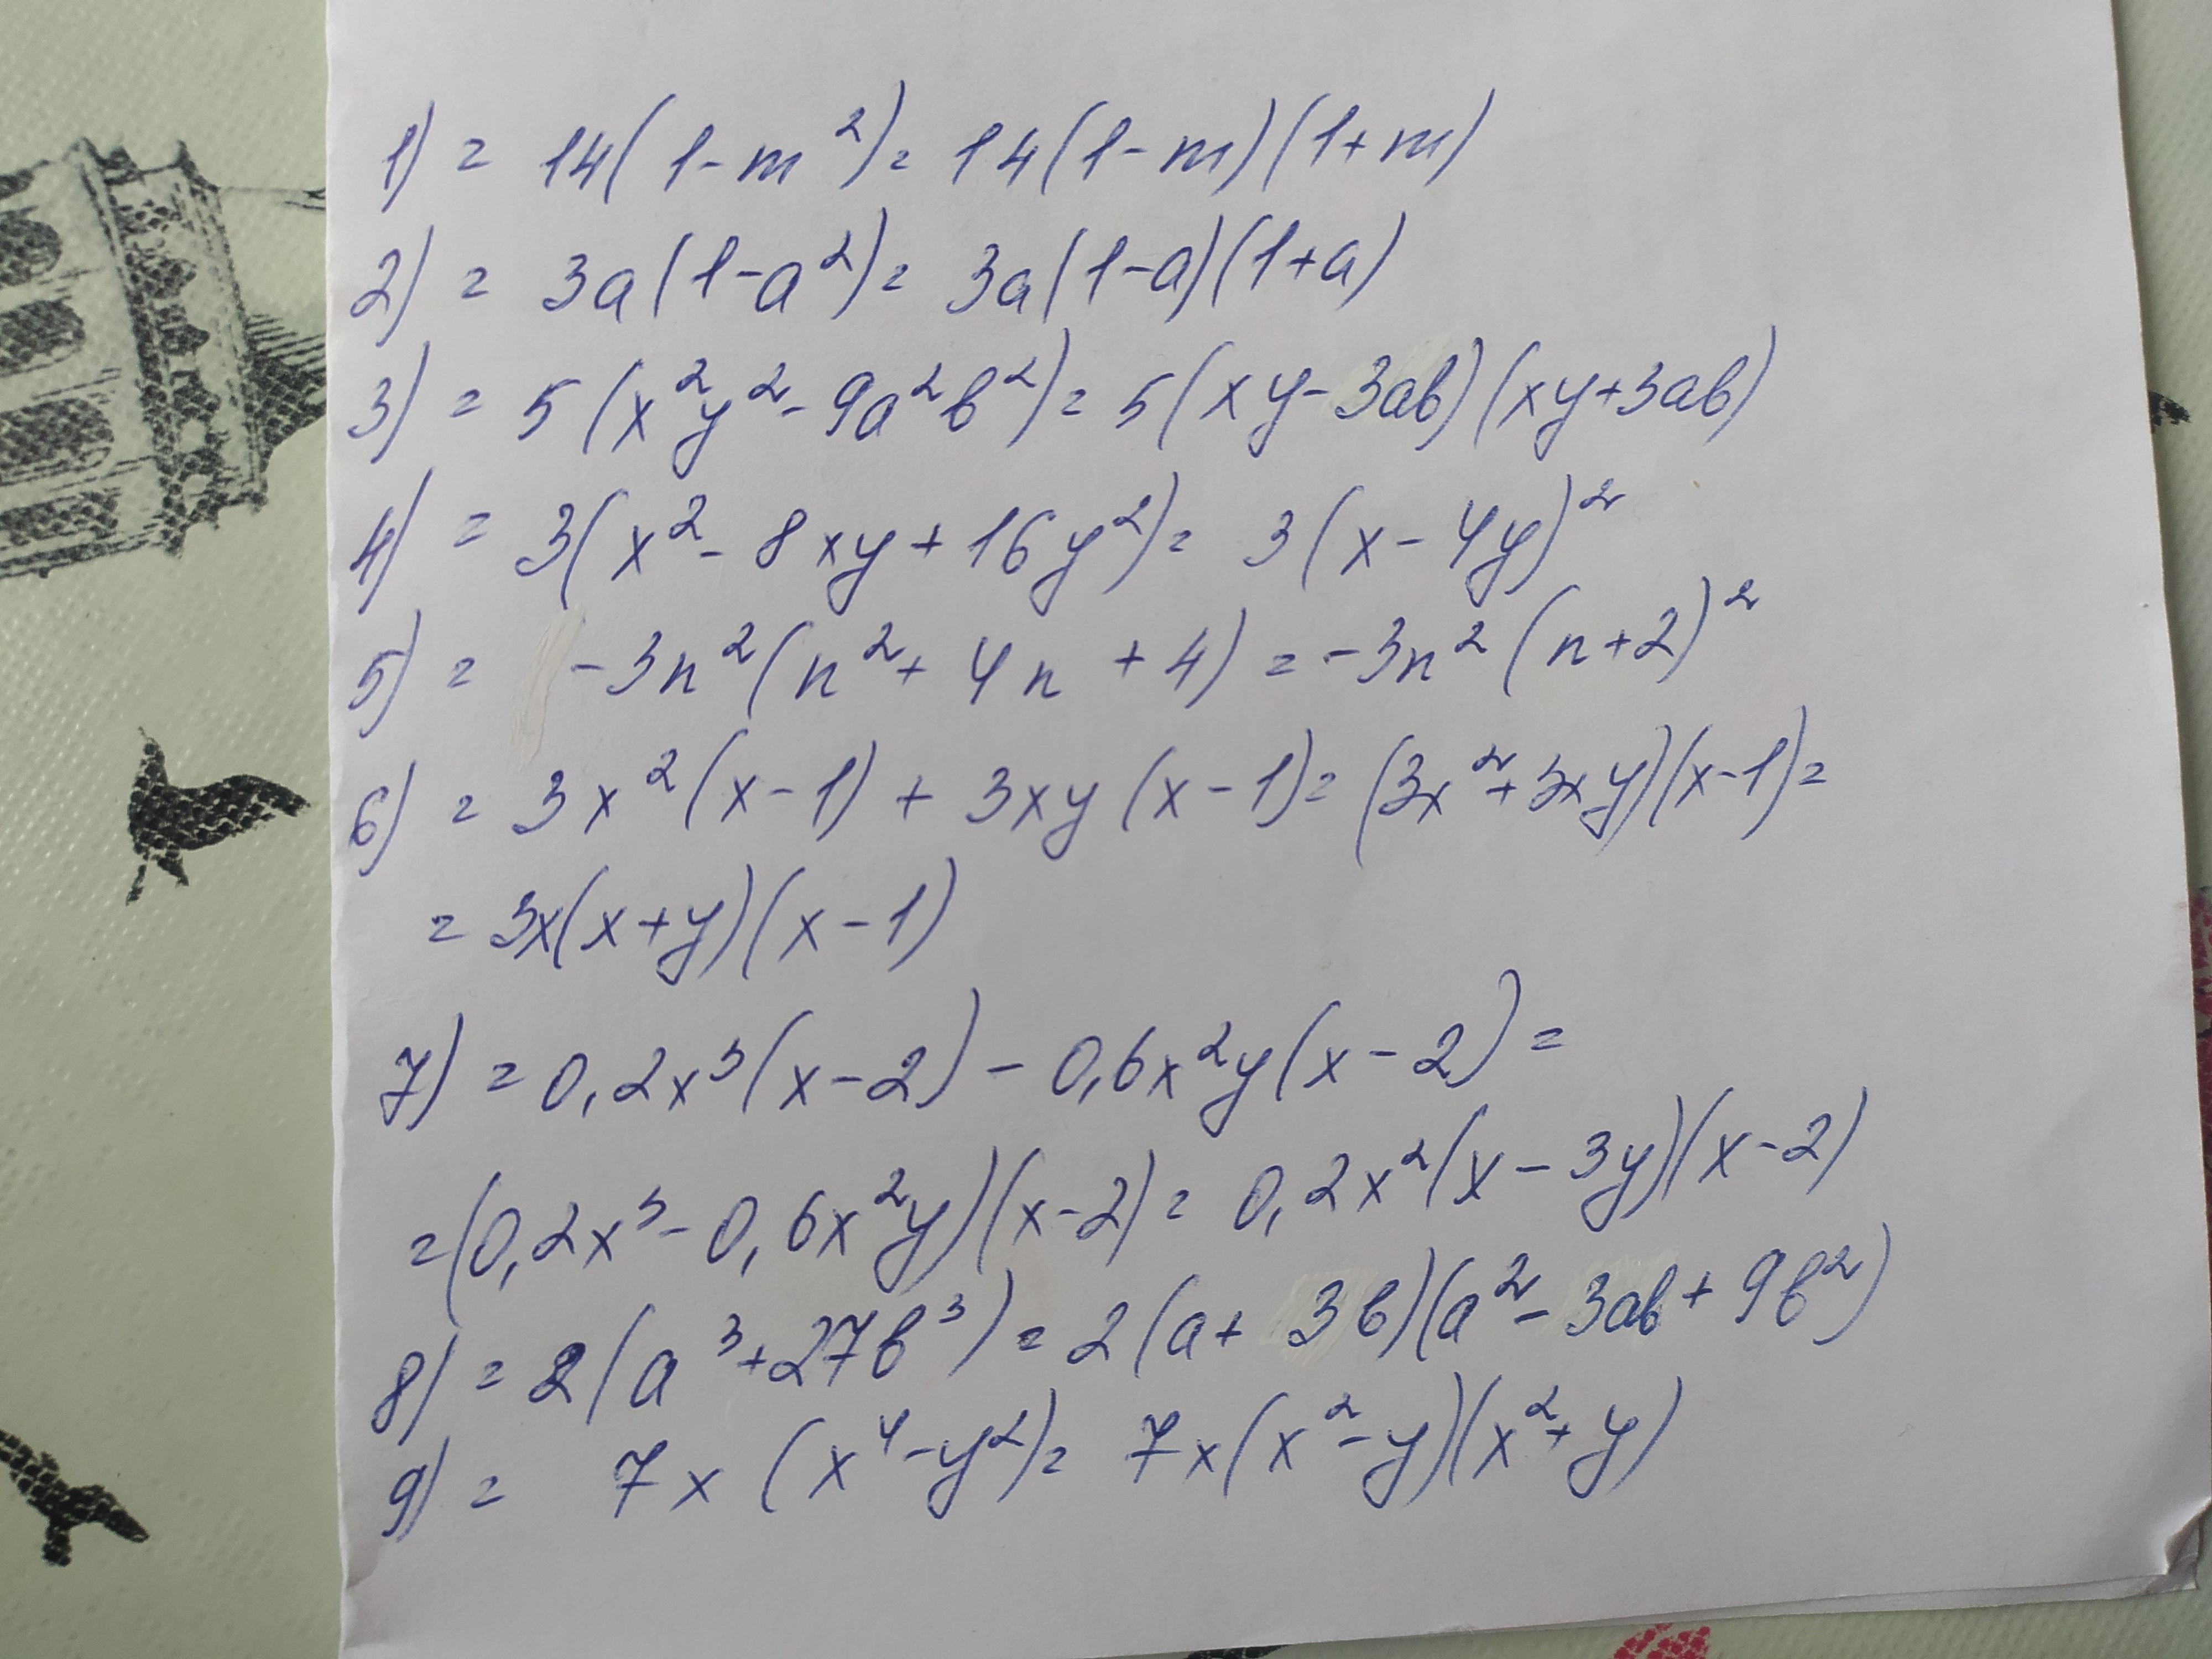 1) = 14(1-m²) = 14(1-m)(1+m)
2) = 3a(1-a²) = 3a(1-a)(1+a)
3) = 5(x²y² - 9a²b²) = 5(xy-3ab)(xy+3ab)
4) = 3(x² - 8xy + 16y²) = 3(x-4y)²
5) = -3n²(n² + 4n + 4) = -3n²(n+2)²
6) = 3x²(x-1) + 3xy(x-1) = (3x²+3xy)(x-1) =
= 3x(x+y)(x-1)
7) = 0,2x³(x-2) - 0,6x²y(x-2) =
= (0,2x³ - 0,6x²y)(x-2) = 0,2x²(x-3y)(x-2)
8) = 2(a³+27b³) = 2(a+3b)(a² - 3ab + 9b²)
9) = 7x(x⁴-y²) = 7x(x²-y)(x²+y)